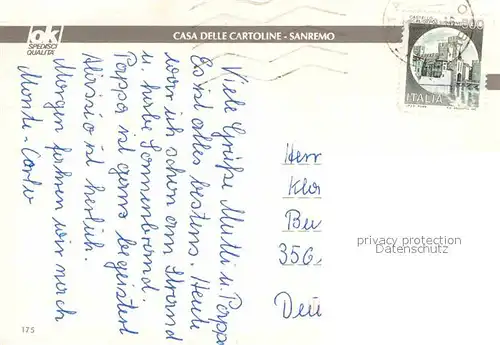 ok
SPEDISCI
QUALITA'
CASA DELLE CARTOLINE - SANREMO
CASTELLO
ITALIA
Viele Grüße Mutti u. Pappa
Es ist alles bestens. Heute
war ich schon am Strand
u. habe Sonnenbrand.
Pappa ist ganz begeistert
Alassio ist herlich.
Morgen fahren wir nach
Monte-Carlo
Herr
Kla
Be
356
Deu
privacy protection
Datenschutz
175